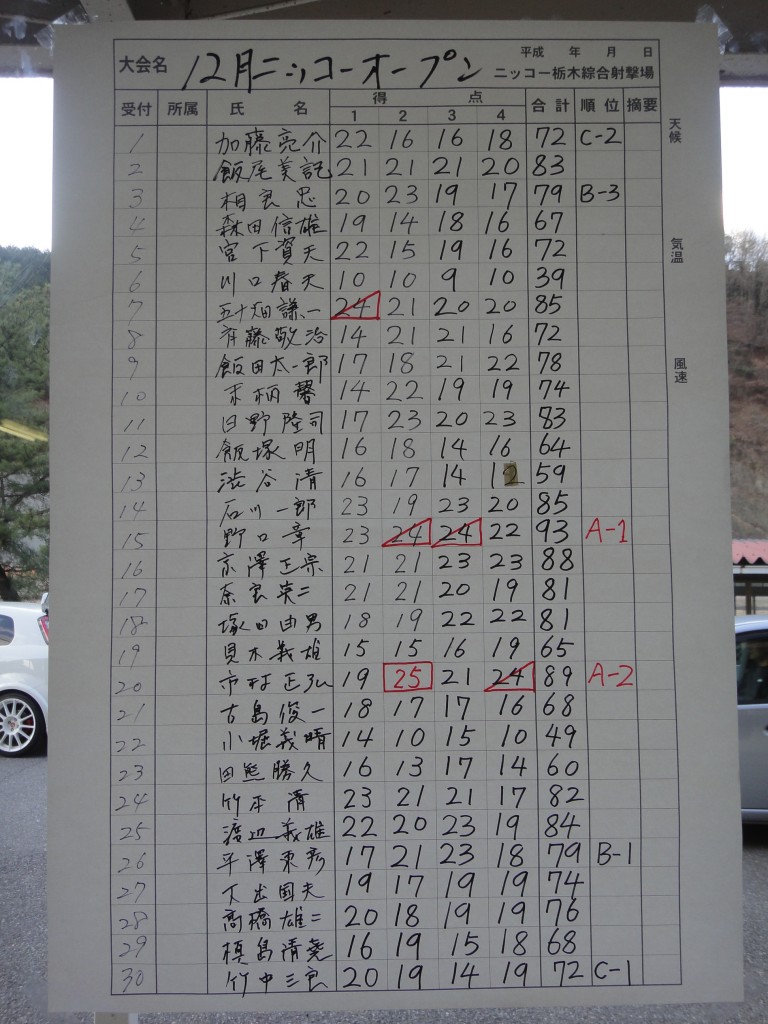 平成 年 月 日
大会名 12月ニッコーオープン ニッコー栃木綜合射撃場
受付 所属 氏 名 得 点 合計 順位 摘要
1 2 3 4
天候
気温
風速
1 加藤亮介 22 16 16 18 72 C-2
2 飯尾美記 21 21 21 20 83
3 相良忠 20 23 19 17 79 B-3
4 森田信雄 19 14 18 16 67
5 宮下資天 22 15 19 16 72
6 川口春夫 10 10 9 10 39
7 五十畑謙一 24 21 20 20 85
8 斉藤敬治 14 21 21 16 72
9 飯田太一郎 17 18 21 22 78
10 末柄馨 14 22 19 19 74
11 日野隆司 17 23 20 23 83
12 飯塚明 16 18 14 16 64
13 渋谷清 16 17 14 12 59
14 石川一郎 23 19 23 20 85
15 野口章 23 24 24 22 93 A-1
16 京澤正宗 21 21 23 23 88
17 奈良英二 21 21 20 19 81
18 塚田由男 18 19 22 22 81
19 貝木義雄 15 15 16 19 65
20 市村正弘 19 25 21 24 89 A-2
21 古島俊一 18 17 17 16 68
22 小堀義晴 14 10 15 10 49
23 田熊勝久 16 13 17 14 60
24 竹本清 23 21 21 17 82
25 渡辺義雄 22 20 23 19 84
26 平澤東彦 17 21 23 18 79 B-1
27 国夫 19 17 19 19 74
28 高橋雄二 20 18 19 19 76
29 槙島清尭 16 19 15 18 68
30 竹中三良 20 19 14 19 72 C-1